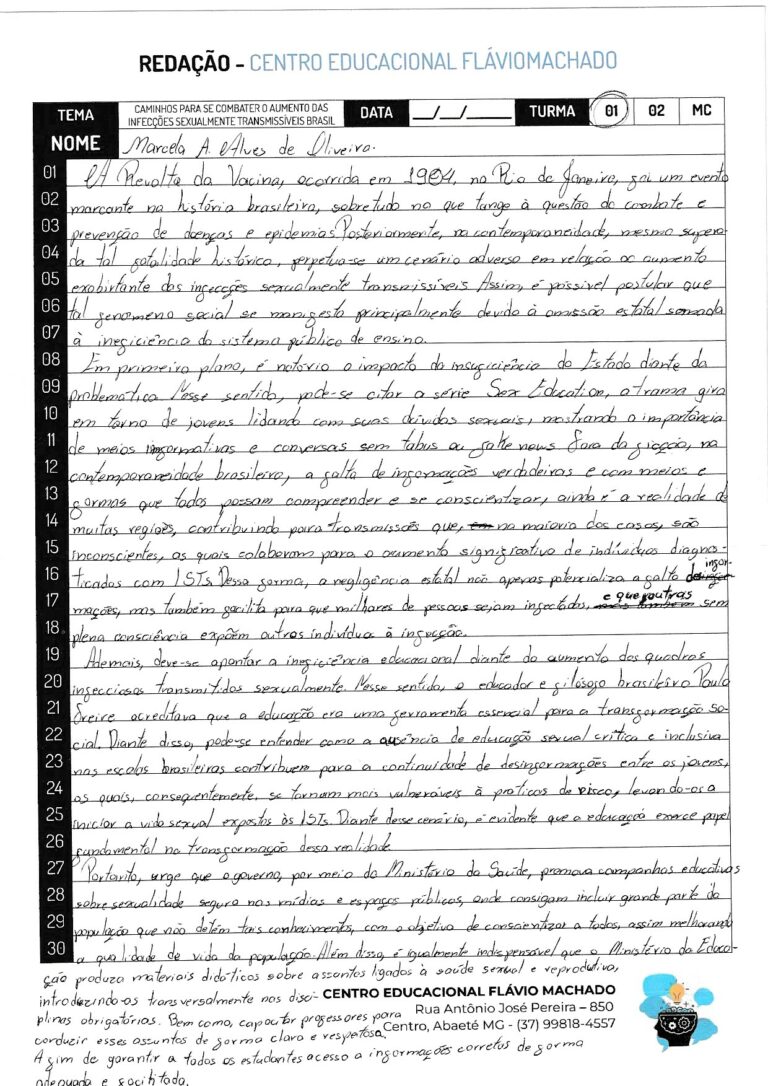 REDAÇÃO - CENTRO EDUCACIONAL FLÁVIOMACHADO
TEMA CAMINHOS PARA SE COMBATER O AUMENTO DAS INFECÇÕES SEXUALMENTE TRANSMISSÍVEIS BRASIL DATA __/__/__ TURMA 01 02 MC
NOME Marcela A. Alves de Oliveira.
01 A Revolta da Vacina, ocorrida em 1904, no Rio de Janeiro, foi um evento
02 marcante na história brasileira, sobretudo no que tange à questão do combate e
03 prevenção de doenças e epidemias. Posteriormente, na contemporaneidade, mesmo supera-
04 da tal fatalidade histórica, perpetua-se um cenário adverso em relação ao aumento
05 exobirtante das infecções sexualmente transmissíveis. Assim, é possível postular que
06 tal fenômeno social se manifesta principalmente devido à omissão estatal somada
07 à ineficiência do sistema público de ensino.
08 Em primeiro plano, é notório o impacto da insuficiência do Estado diante da
09 problemática. Nesse sentido, pode-se citar a série Sex Education, a trama gira
10 em torno de jovens lidando com suas dúvidas sexuais, mostrando a importância
11 de meios informativos e conversas sem tabus ou falke news. Fora da ficção, na
12 contemporaneidade brasileira, a falta de informações verdadeiras e com meios e
13 formas que todos possam compreender e se conscientizar, ainda é a realidade de
14 muitas regiões, contribuindo para transmissões que, na maioria dos casos, são
15 inconscientes, os quais colaboram para o aumento significativo de indivíduos diagnos-
16 ticados com ISTs. Dessa forma, a negligência estatal não apenas potencializa a falta infor-
17 mações, mas também facilita para que milhares de pessoas sejam infectadas, e que outras sem
18 plena consciência expõem outros indivídua à infecção.
19 Ademais, deve-se apontar a ineficiência educacional diante do aumento dos quadros
20 infecciosos transmitidos sexualmente. Nesse sentido, o educador e filósofo brasileiro Paulo
21 Freire acreditava que a educação era uma ferramenta essencial para a transformação so-
22 cial. Diante disso, pode-se entender como a ausência de educação sexual crítica e inclusiva
23 nas escolas brasileiras contribuem para a continuidade de desinformações entre os jovens,
24 os quais, consequentemente, se tornam mais vulneráveis à práticas de risco, levando-os a
25 iniciar a vida sexual expostos às ISTs. Diante desse cenário, é evidente que a educação exerce papel
26 fundamental na transformação dessa realidade.
27 Portanto, urge que o governo, por meio do Ministério da Saúde, promova campanhas educativas
28 sobre sexualidade segura nas mídias e espaços públicos, onde consigam incluir grande parte da
29 população que não detém tais conhecimentos, com o objetivo de conscientizar a todos, assim melhorando
30 a qualidade de vida da população. Além disso, é igualmente indispensável que o Ministério da Educa-
ção produza materiais didáticos sobre assuntos ligados à saúde sexual e reprodutiva,
introduzindo-os transversalmente nas disci-
plinas obrigatórias. Bem como, capacitar professores para
conduzir esses assuntos de forma clara e respeitosa.
A fim de garantir a todos os estudantes acesso a informações corretas de forma
adequada e facilitada.
CENTRO EDUCACIONAL FLÁVIO MACHADO
Rua Antônio José Pereira – 850
Centro, Abaeté MG - (37) 99818-4557